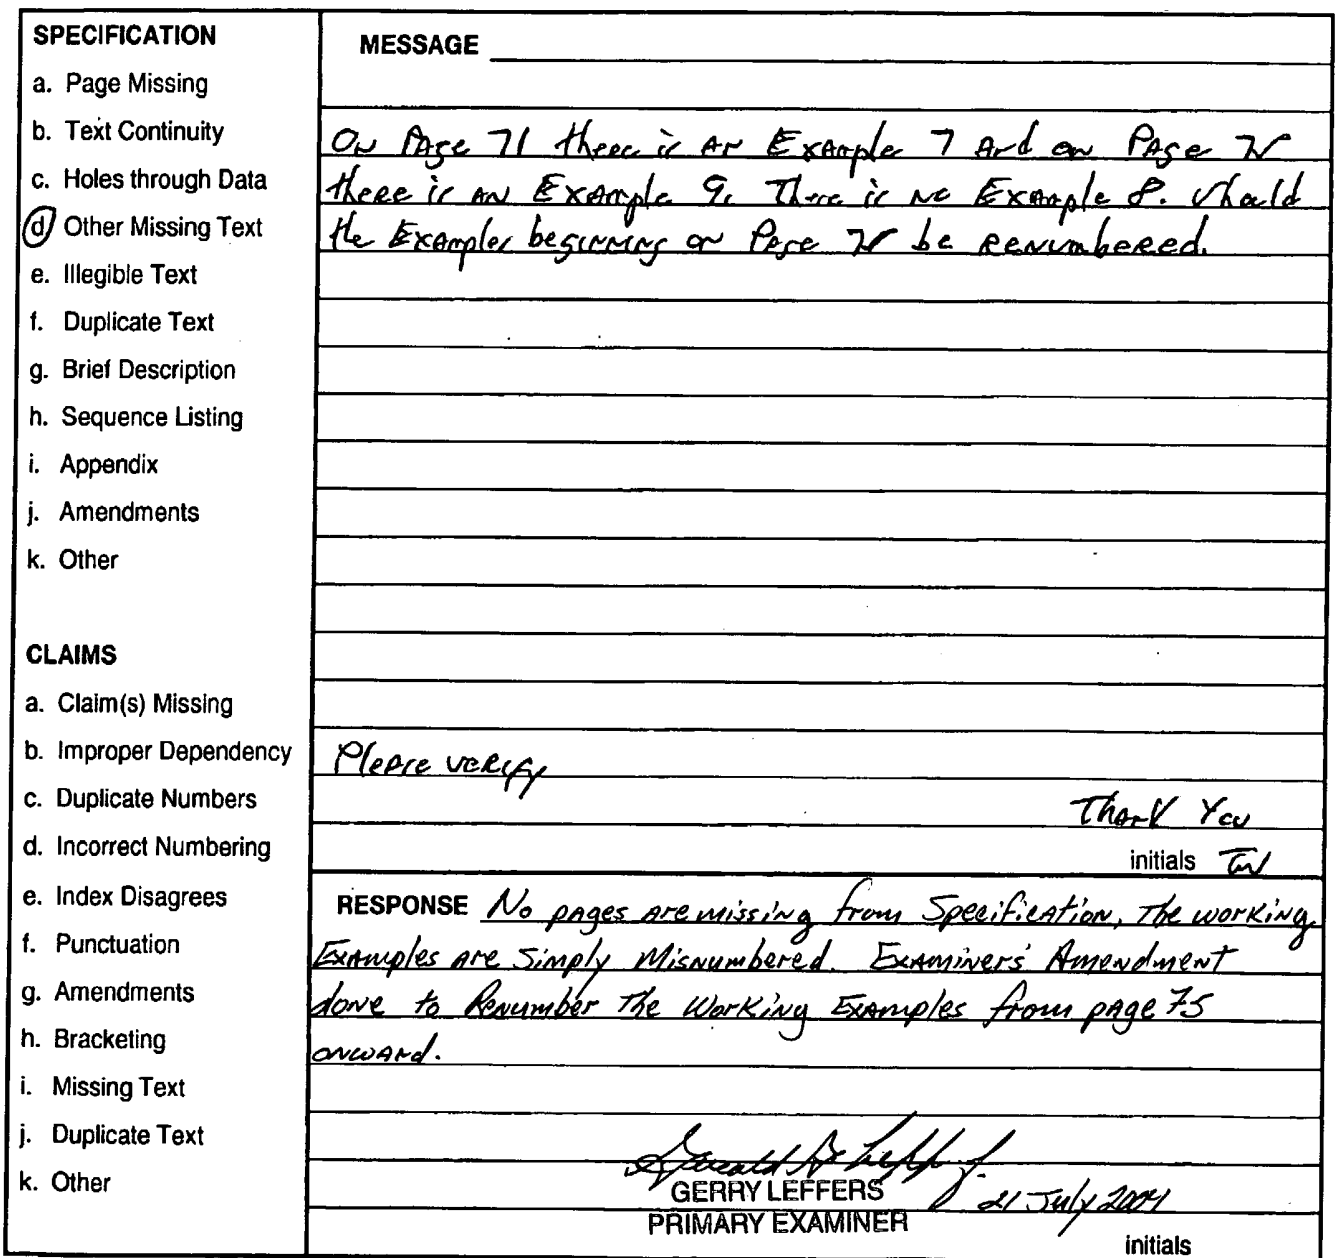 SPECIFICATION
a. Page Missing
b. Text Continuity
c. Holes through Data
d Other Missing Text
e. Illegible Text
f. Duplicate Text
g. Brief Description
h. Sequence Listing
i. Appendix
j. Amendments
k. Other
CLAIMS
a. Claim(s) Missing
b. Improper Dependency
c. Duplicate Numbers
d. Incorrect Numbering
e. Index Disagrees
f. Punctuation
g. Amendments
h. Bracketing
i. Missing Text
j. Duplicate Text
k. Other
MESSAGE
On Page 71 there is an Example 7 And on Page 75
there is an Example 9. There is no Example 8. Should
the Examples beginning on Page 75 be renumbered.
Please verify
Thank You
initials TW
RESPONSE No pages are missing from Specification, The working
Examples are simply Misnumbered. Examiners' Amendment
done to Renumber The Working Examples from page 75
onward.
GERRY LEFFERS
21 July 2004
PRIMARY EXAMINER
initials